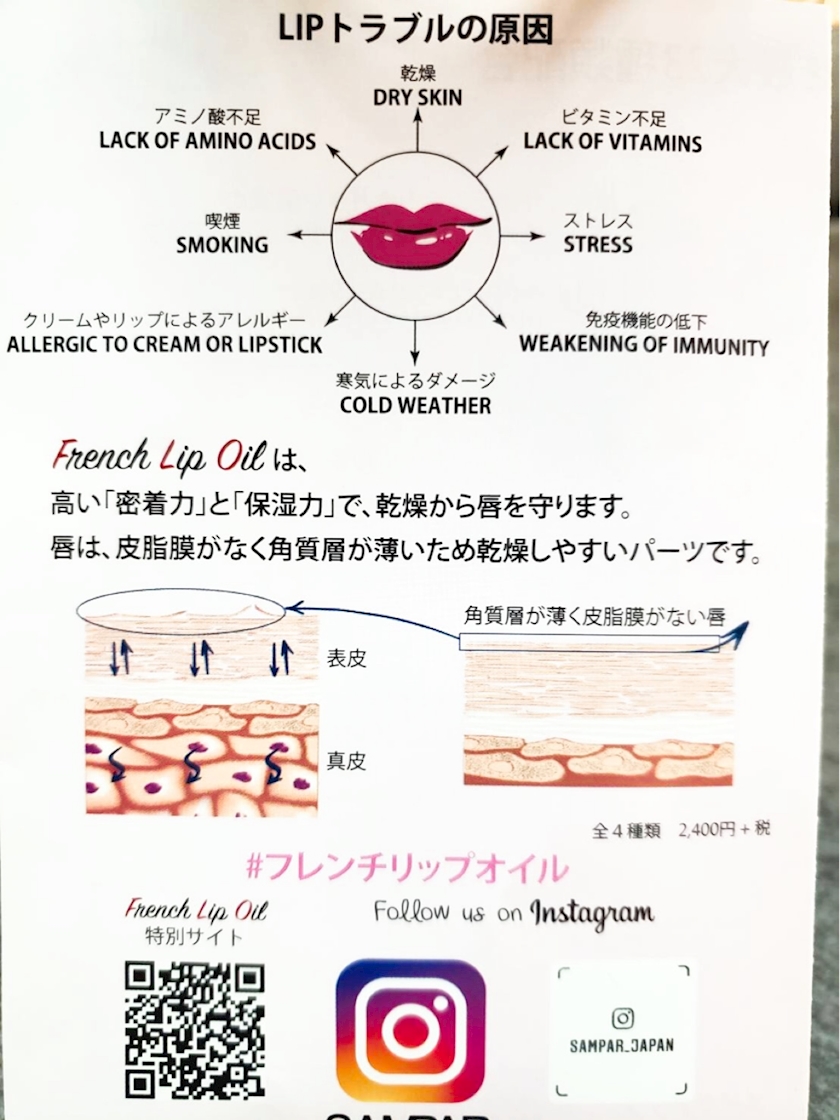 LIPトラブルの原因
乾燥
DRY SKIN
アミノ酸不足
LACK OF AMINO ACIDS
ビタミン不足
LACK OF VITAMINS
喫煙
SMOKING
ストレス
STRESS
クリームやリップによるアレルギー
ALLERGIC TO CREAM OR LIPSTICK
免疫機能の低下
WEAKENING OF IMMUNITY
寒気によるダメージ
COLD WEATHER
French Lip Oil は、
高い「密着力」と「保湿力」で、乾燥から唇を守ります。
唇は、皮脂膜がなく角質層が薄いため乾燥しやすいパーツです。
角質層が薄く皮脂膜がない唇
表皮
真皮
全4種類 2,400円+税
#フレンチリップオイル
French Lip Oil
特別サイト
Follow us on Instagram
SAMPAR_JAPAN
SAMPAR